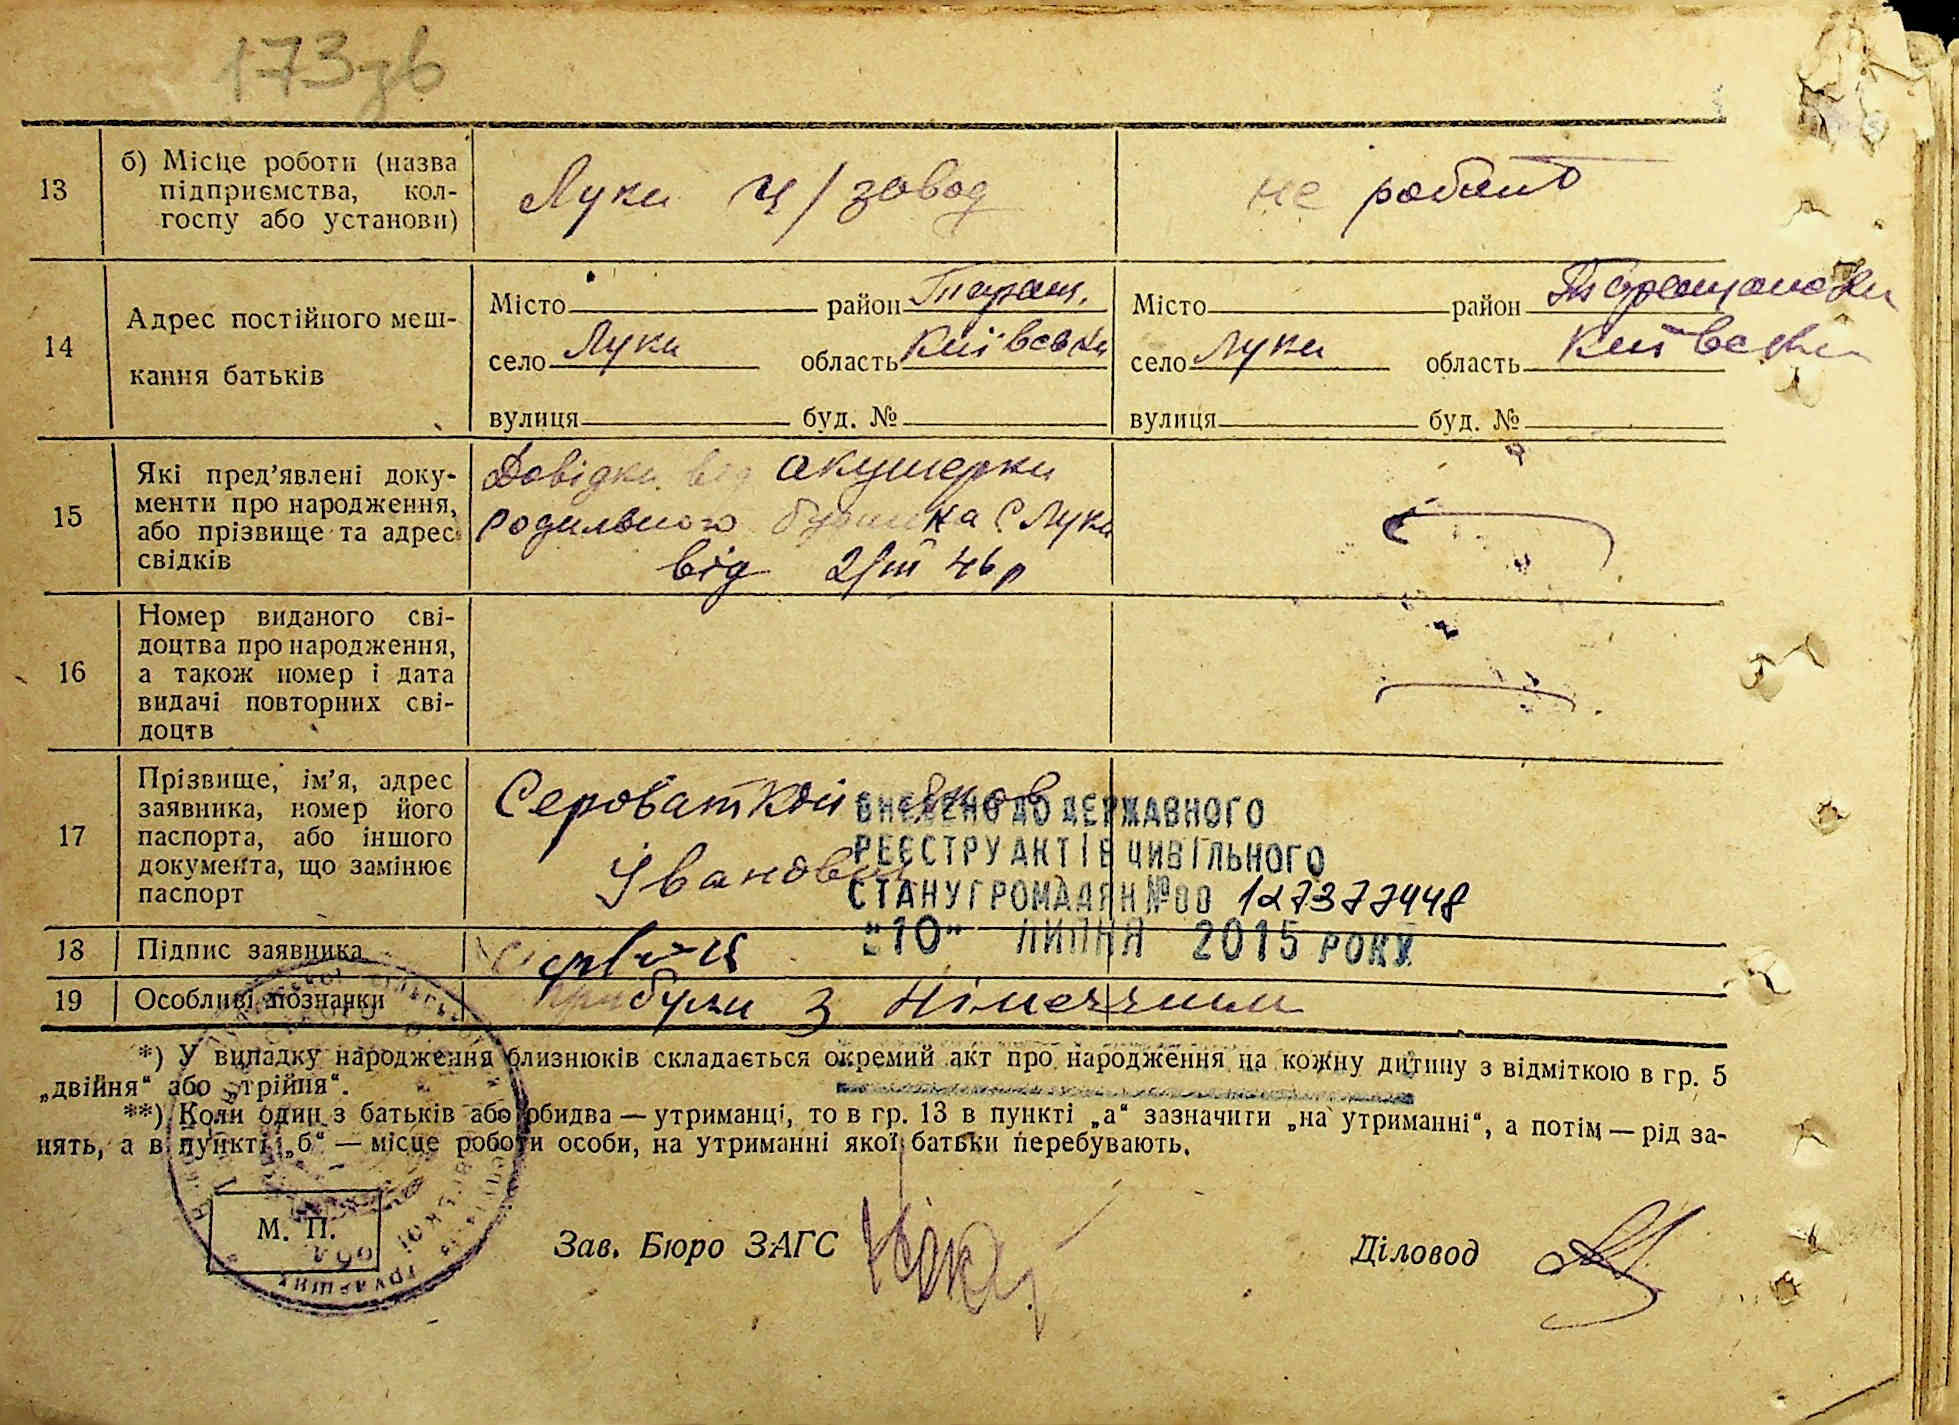 173зв
13
б) Місце роботи (назва
підприємства, кол-
госпу або установи)
Луки ц/завод
не робить
14
Адрес постійного меш-
кання батьків
Місто район Таращ.
село Луки область Київськ
вулиця буд. №
Місто район Таращанськ
село Луки область Київськ
вулиця буд. №
15
Які пред'явлені доку-
менти про народження,
або прізвище та адрес
свідків
Довідки від акушерки
родильного будинка С Лука
від 2/III 46 р
16
Номер виданого сві-
доцтва про народження,
а також номер і дата
видачі повторних сві-
доцтв
17
Прізвище, ім'я, адрес
заявника, номер його
паспорта, або іншого
документа, що замінює
паспорт
Сероваткой
Іванович
ВНЕСЕНО ДО ДЕРЖАВНОГО
РЕЄСТРУ АКТІВ ЦИВІЛЬНОГО
СТАНУ ГРОМАДЯН №00 127377448
"10" ЛИПНЯ 2015 РОКУ
18
Підпис заявника
19
Особливі познанки
прибули з Німеччини
*) У випадку народження близнюків складається окремий акт про народження на кожну дитину з відміткою в гр. 5
„двійня“ або „трійня“.
**) Коли один з батьків або обидва — утриманці, то в гр. 13 в пункті „а“ зазначити „на утриманні“, а потім — рід за-
нять, а в пункті „б“ — місце роботи особи, на утриманні якої батьки перебувають.
М. П.
Зав. Бюро ЗАГС
Діловод